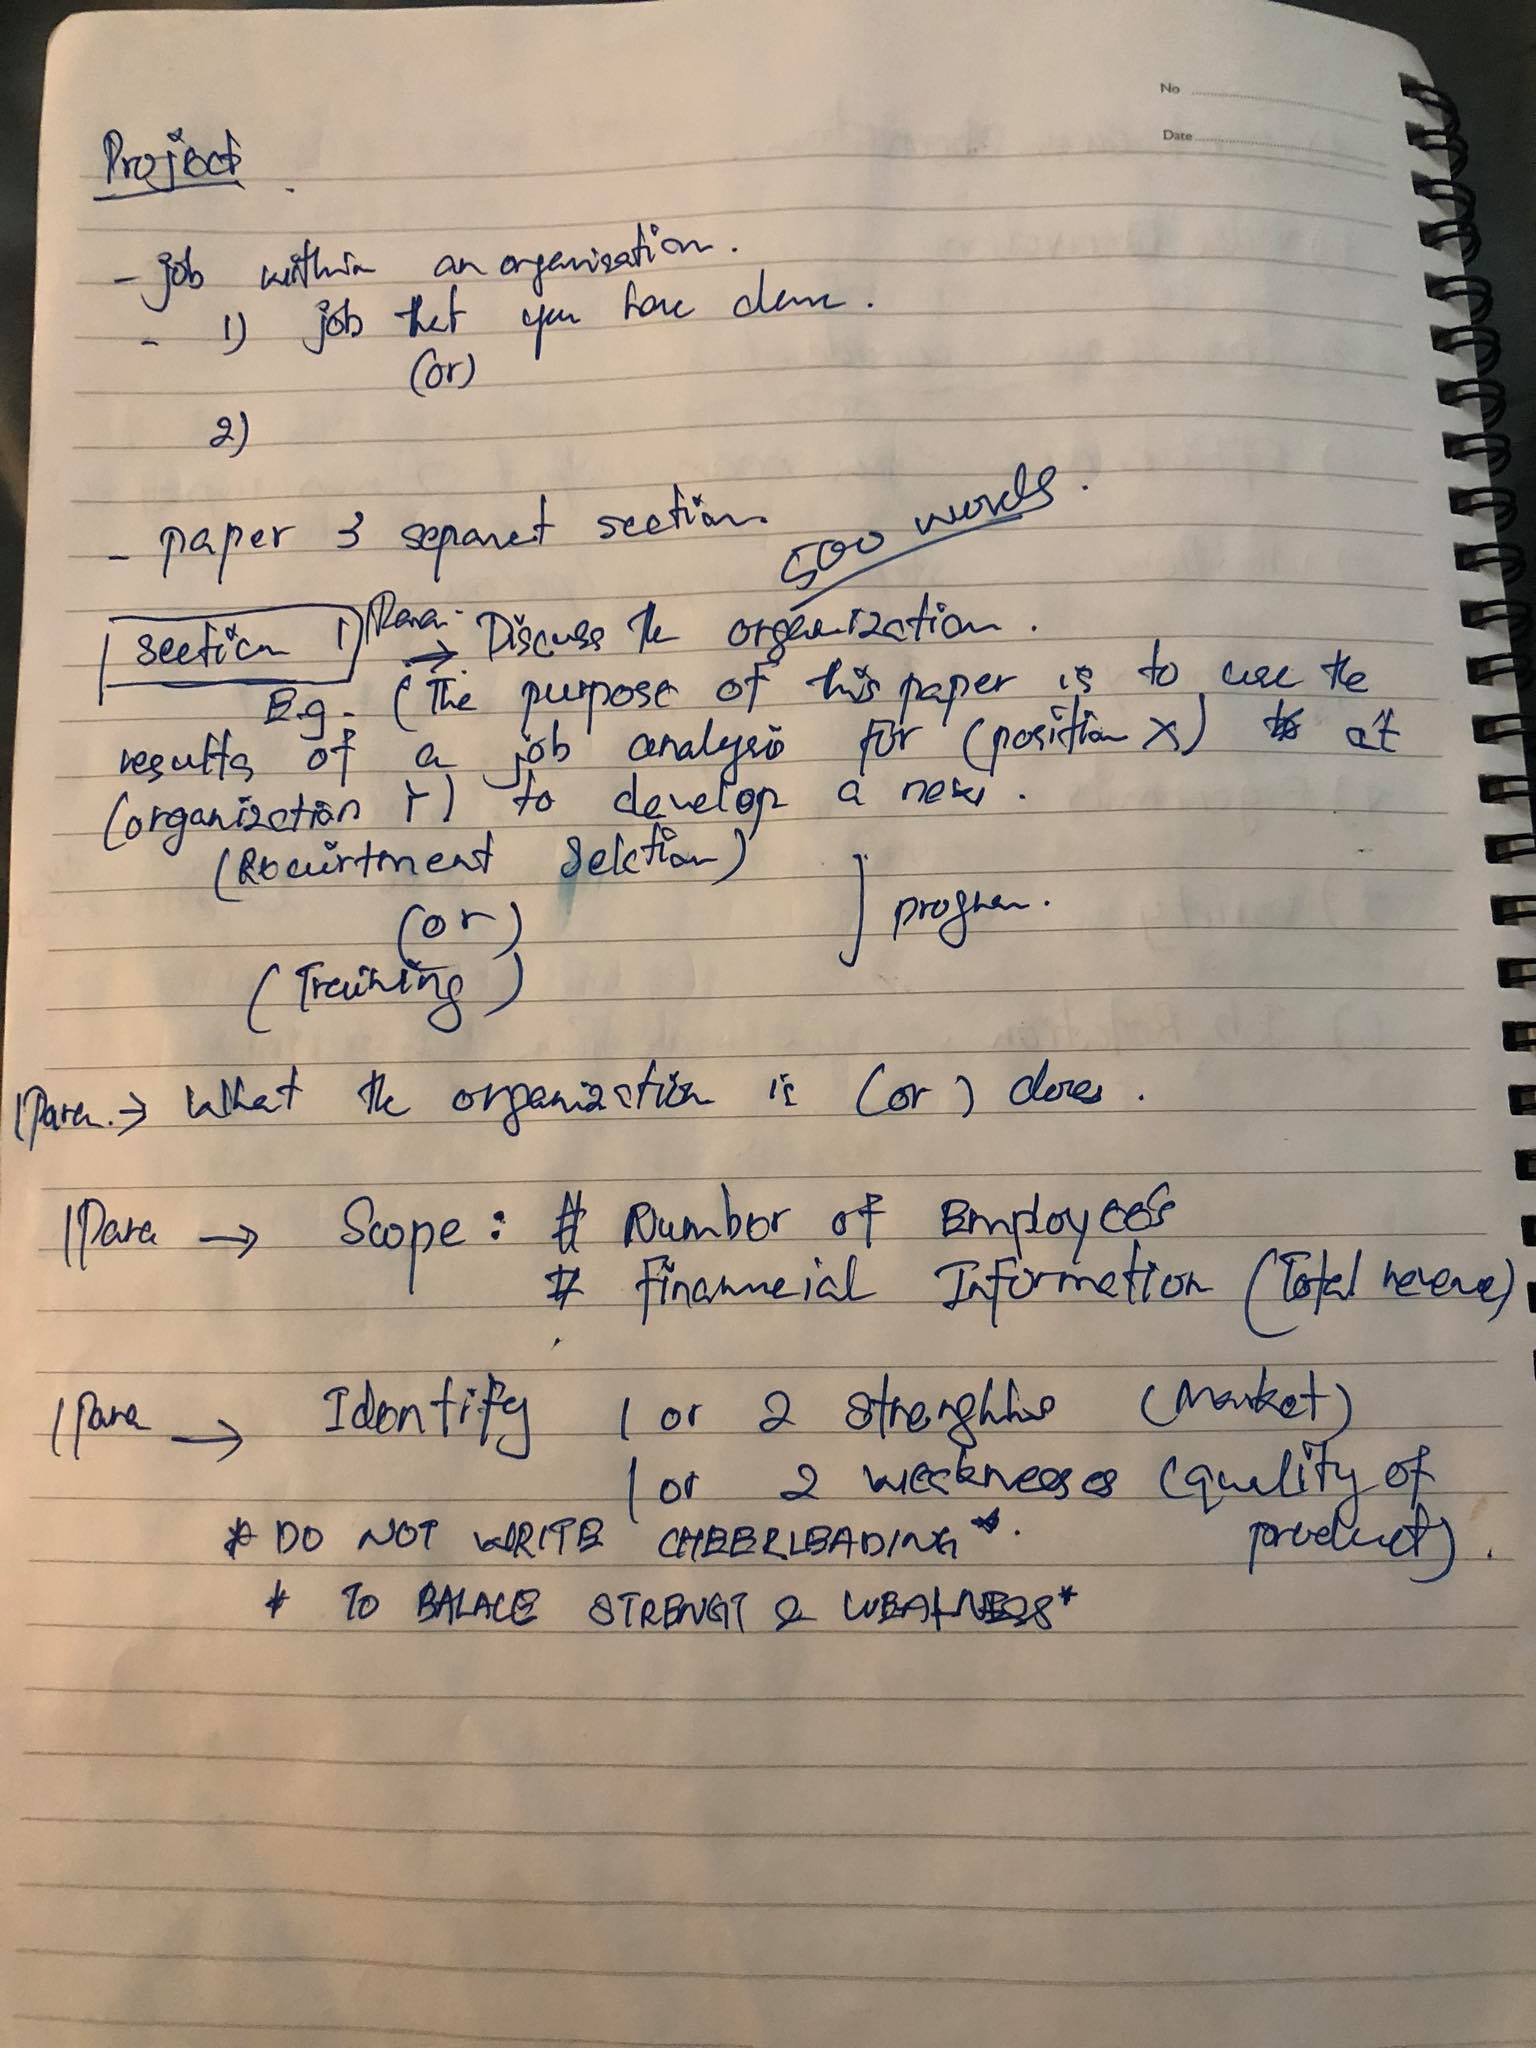 No
Date
Project
- job within an organization.
- 1) job that you have done.
(or)
2)
- paper 3 separet section.
500 words.
section 1 Para. → Discuss the organization.
E.g. (The purpose of this paper is to use the
results of a job analysis for (position X) at
(organization Y) to develop a new.
(Recuirtment Selction)
(or) ] program.
(Training)
1 Para. → What the organization is (or) does.
1 Para → Scope: # Number of Employees
# Financial Information (Total revenue)
1 Para → Identify 1 or 2 strenghts (Market)
1 or 2 weaknesses (quality of
product).
* DO NOT WRITE CHEERLEADING *.
* TO BALACE STRENGT & WEAKNESS *